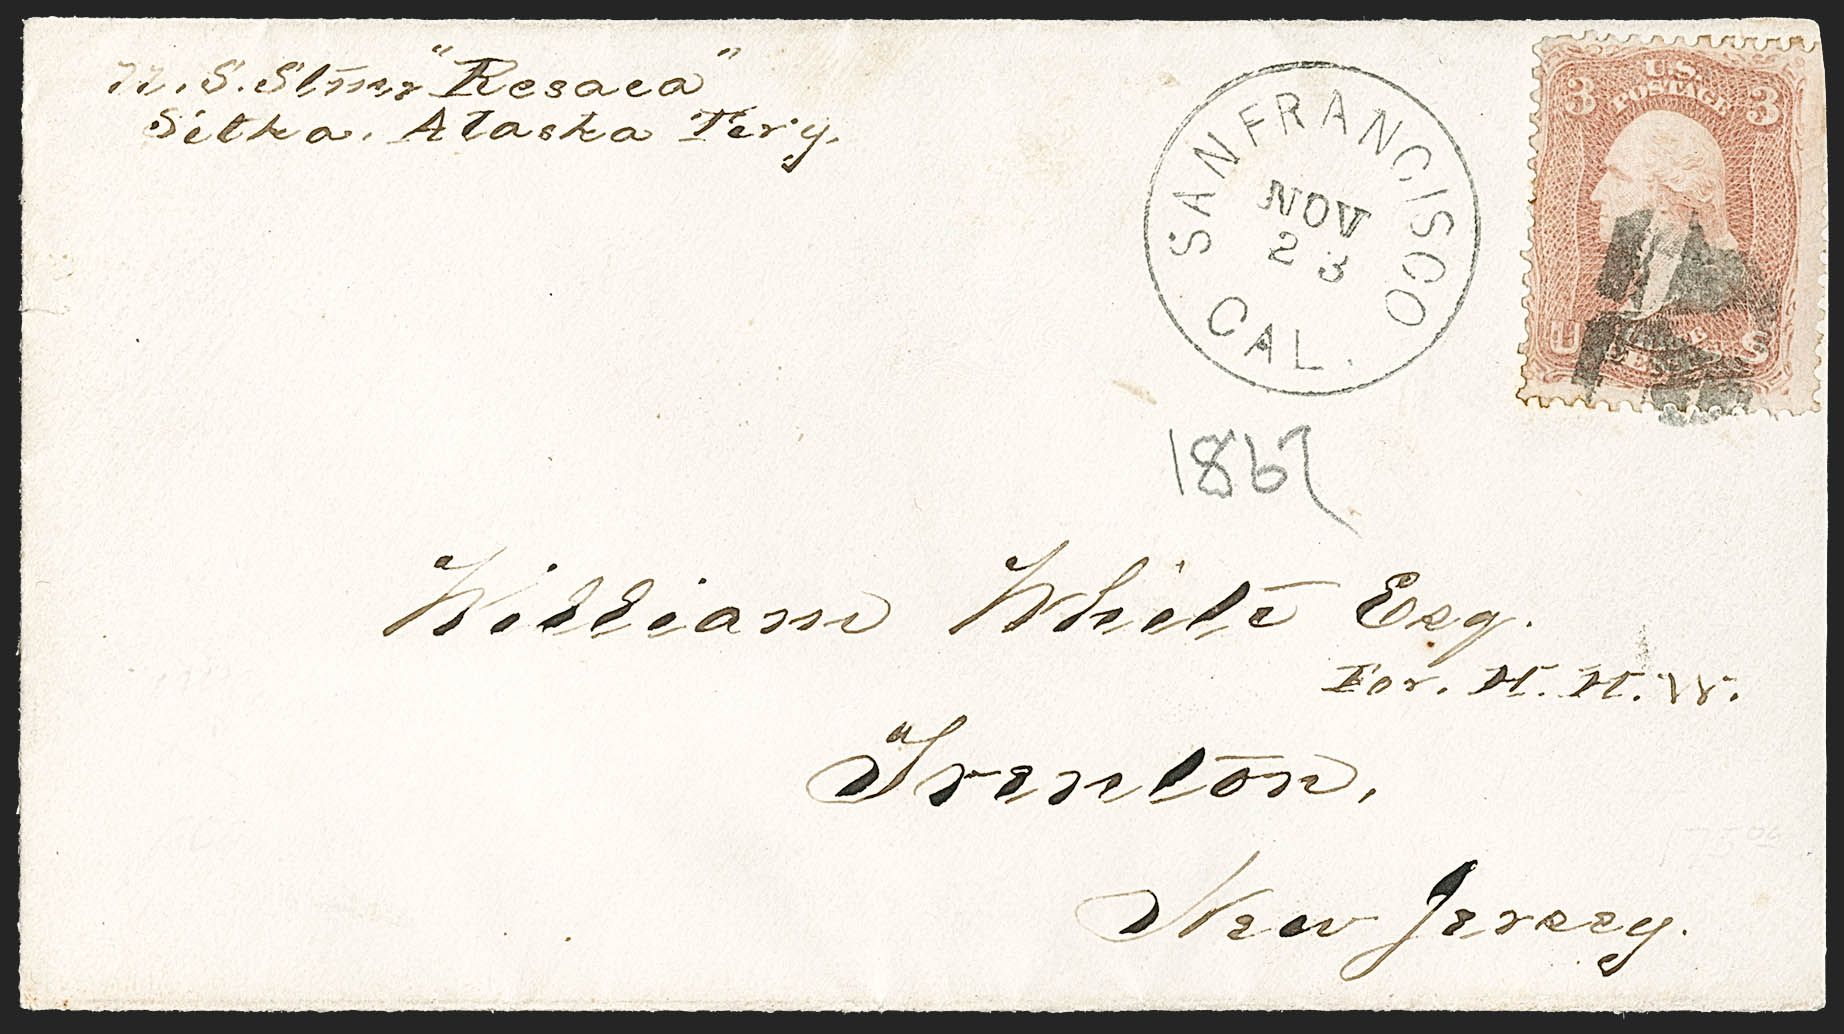 U.S. Stmr "Resaca"
Sitka, Alaska Tery.
SAN FRANCISCO
NOV
23
CAL.
U.S.
POSTAGE
3 3
U S
1867
William White Esq.
For. H. H. W.
Trenton,
New Jersey.